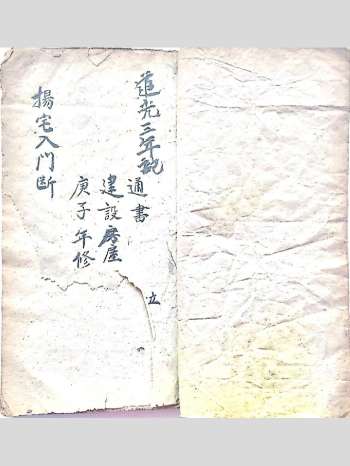 道光三年記
通書
建設房屋
庚子年修
立
揚宅入門断